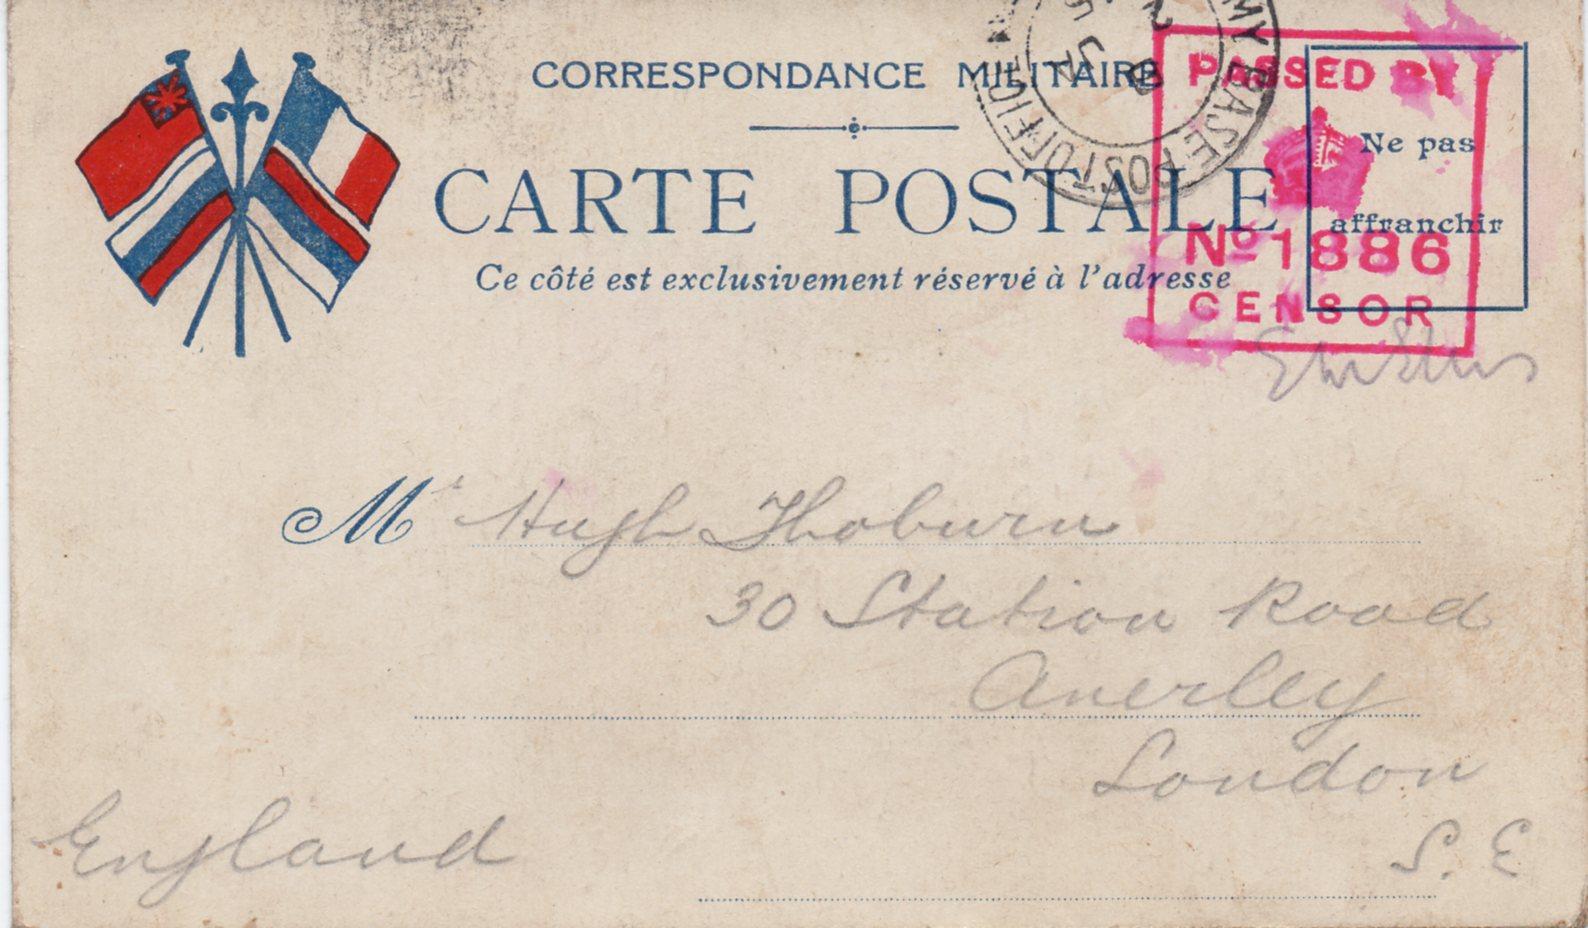 CORRESPONDANCE MILITAIRE
CARTE POSTALE
Ce côté est exclusivement réservé à l'adresse
MY BASE POST OFFICE
PASSED BY
Nº 1886
CENSOR
Ne pas
affranchir
Mr Hugh Thoburn
30 Station Road
Anerley
London
S. E
England